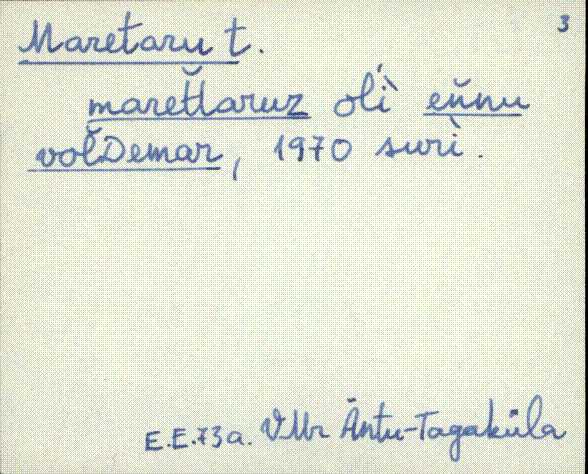 3
Maretaru t.
maret̆t̆aruz oĺì en̆nu
vol̆Demar, 1970 suri̇̀.
E.E.73a. VMr Äntu-Tagaküla